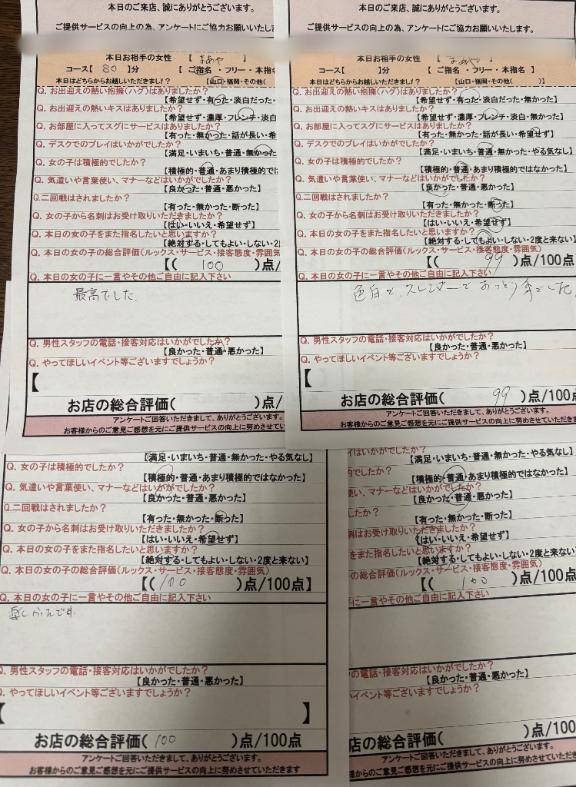 本日のご来店、誠にありがとうございます。
ご提供サービスの向上の為、アンケートにご協力お願いします
本日お相手の女性 【 まあや
コース【 80 】分 【 ご指名 ・ フリー ・ 本指名
本日はどちらからお越しいただきましたか? 【山口・福岡・その他(
Q. お出迎えの熱い抱擁(ハグ)はありましたか?
【希望せず・有った・淡白だった・
Q. お出迎えに熱いキスはありましたか?
【希望せず・濃厚・フレンチ・淡白
Q. お部屋に入ってスグにサービスはありましたか?
【有った・無かった・話が長い・希
Q. デスクでのプレイはいかがでしたか?
【満足・いまいち・普通・無かった
Q. 女の子は積極的でしたか?
【積極的・普通・あまり積極的では
Q. 気遣いや言葉使い、マナーなどはいかがでしたか?
【良かった・普通・悪かった】
Q.二回戦はされましたか?
【有った・無かった・断った】
Q. 女の子から名刺はお受け取りいただきましたか?
【はい・いいえ・希望せず】
Q. 本日の女の子をまた指名したいと思いますか?
【絶対する・してもよい・しない・2度
Q. 本日の女の子の総合評価(ルックス・サービス・接客態度・雰囲気
【( 100 )点/
Q. 本日の女の子に一言やその他ご自由に記入下さい
最高でした
Q. 男性スタッフの電話・接客対応はいかがでしたか?
【良かった・普通・悪かった】
Q. やってほしいイベント等ございますでしょうか?
【
お店の総合評価( )点/
アンケートご回答いただきまして、ありがとうございます。
お客様からのご意見ご感想を元にご提供サービスの向上に努めさせてい
本日のご来店、誠にありがとうございます。
ご提供サービスの向上の為、アンケートにご協力お願いします
本日お相手の女性 【 まあや
コース【 】分 【 ご指名 ・ フリー ・ 本指名
本日はどちらからお越しいただきましたか? 【山口・福岡・その他( )】
Q. お出迎えの熱い抱擁(ハグ)はありましたか?
【希望せず・有った・淡白だった・無かった】
Q. お出迎えに熱いキスはありましたか?
【希望せず・濃厚・フレンチ・淡白・無かった】
Q. お部屋に入ってスグにサービスはありましたか?
【有った・無かった・話が長い・希望せず】
Q. デスクでのプレイはいかがでしたか?
【満足・いまいち・普通・無かった・やる気なし】
Q. 女の子は積極的でしたか?
【積極的・普通・あまり積極的ではなかった】
Q. 気遣いや言葉使い、マナーなどはいかがでしたか?
【良かった・普通・悪かった】
Q.二回戦はされましたか?
【有った・無かった・断った】
Q. 女の子から名刺はお受け取りいただきましたか?
【はい・いいえ・希望せず】
Q. 本日の女の子をまた指名したいと思いますか?
【絶対する・してもよい・しない・2度と来ない】
Q. 本日の女の子の総合評価(ルックス・サービス・接客態度・雰囲気)
【( 99 )点/100点】
Q. 本日の女の子に一言やその他ご自由に記入下さい
色白で、スレンダーで おっとり 系でした
Q. 男性スタッフの電話・接客対応はいかがでしたか?
【良かった・普通・悪かった】
Q. やってほしいイベント等ございますでしょうか?
【
お店の総合評価( 99 )点/100点
アンケートご回答いただきまして、ありがとうございます。
お客様からのご意見ご感想を元にご提供サービスの向上に努めさせていただきます
【満足・いまいち・普通・無かった・やる気なし】
Q. 女の子は積極的でしたか?
【積極的・普通・あまり積極的ではなかった】
Q. 気遣いや言葉使い、マナーなどはいかがでしたか?
【良かった・普通・悪かった】
Q.二回戦はされましたか?
【有った・無かった・断った】
Q. 女の子から名刺はお受け取りいただきましたか?
【はい・いいえ・希望せず】
Q. 本日の女の子をまた指名したいと思いますか?
【絶対する・してもよい・しない・2度と来ない】
Q. 本日の女の子の総合評価(ルックス・サービス・接客態度・雰囲気)
【( 100 )点/100点】
Q. 本日の女の子に一言やその他ご自由に記入下さい
Q. 男性スタッフの電話・接客対応はいかがでしたか?
【良かった・普通・悪かった】
Q. やってほしいイベント等ございますでしょうか?
【 】
お店の総合評価( 100 )点/100点
アンケートご回答いただきまして、ありがとうございます。
お客様からのご意見ご感想を元にご提供サービスの向上に努めさせていただきます
イはいかがでしたか?
【満足・いまいち・普通・無かった・やる気なし】
でしたか?
【積極的・普通・あまり積極的ではなかった】
い、マナーなどはいかがでしたか?
【良かった・普通・悪かった】
ましたか?
【有った・無かった・断った】
刺はお受け取りいただきましたか?
【はい・いいえ・希望せず】
をまた指名したいと思いますか?
【絶対する・してもよい・しない・2度と来ない】
の総合評価(ルックス・サービス・接客態度・雰囲気)
【( 100 )点/100点】
に一言やその他ご自由に記入下さい
の電話・接客対応はいかがでしたか?
【良かった・普通・悪かった】
イベント等ございますでしょうか?
お店の総合評価( )点/100点
アンケートご回答いただきまして、ありがとうございます。
様からのご意見ご感想を元にご提供サービスの向上に努めさせていただきます